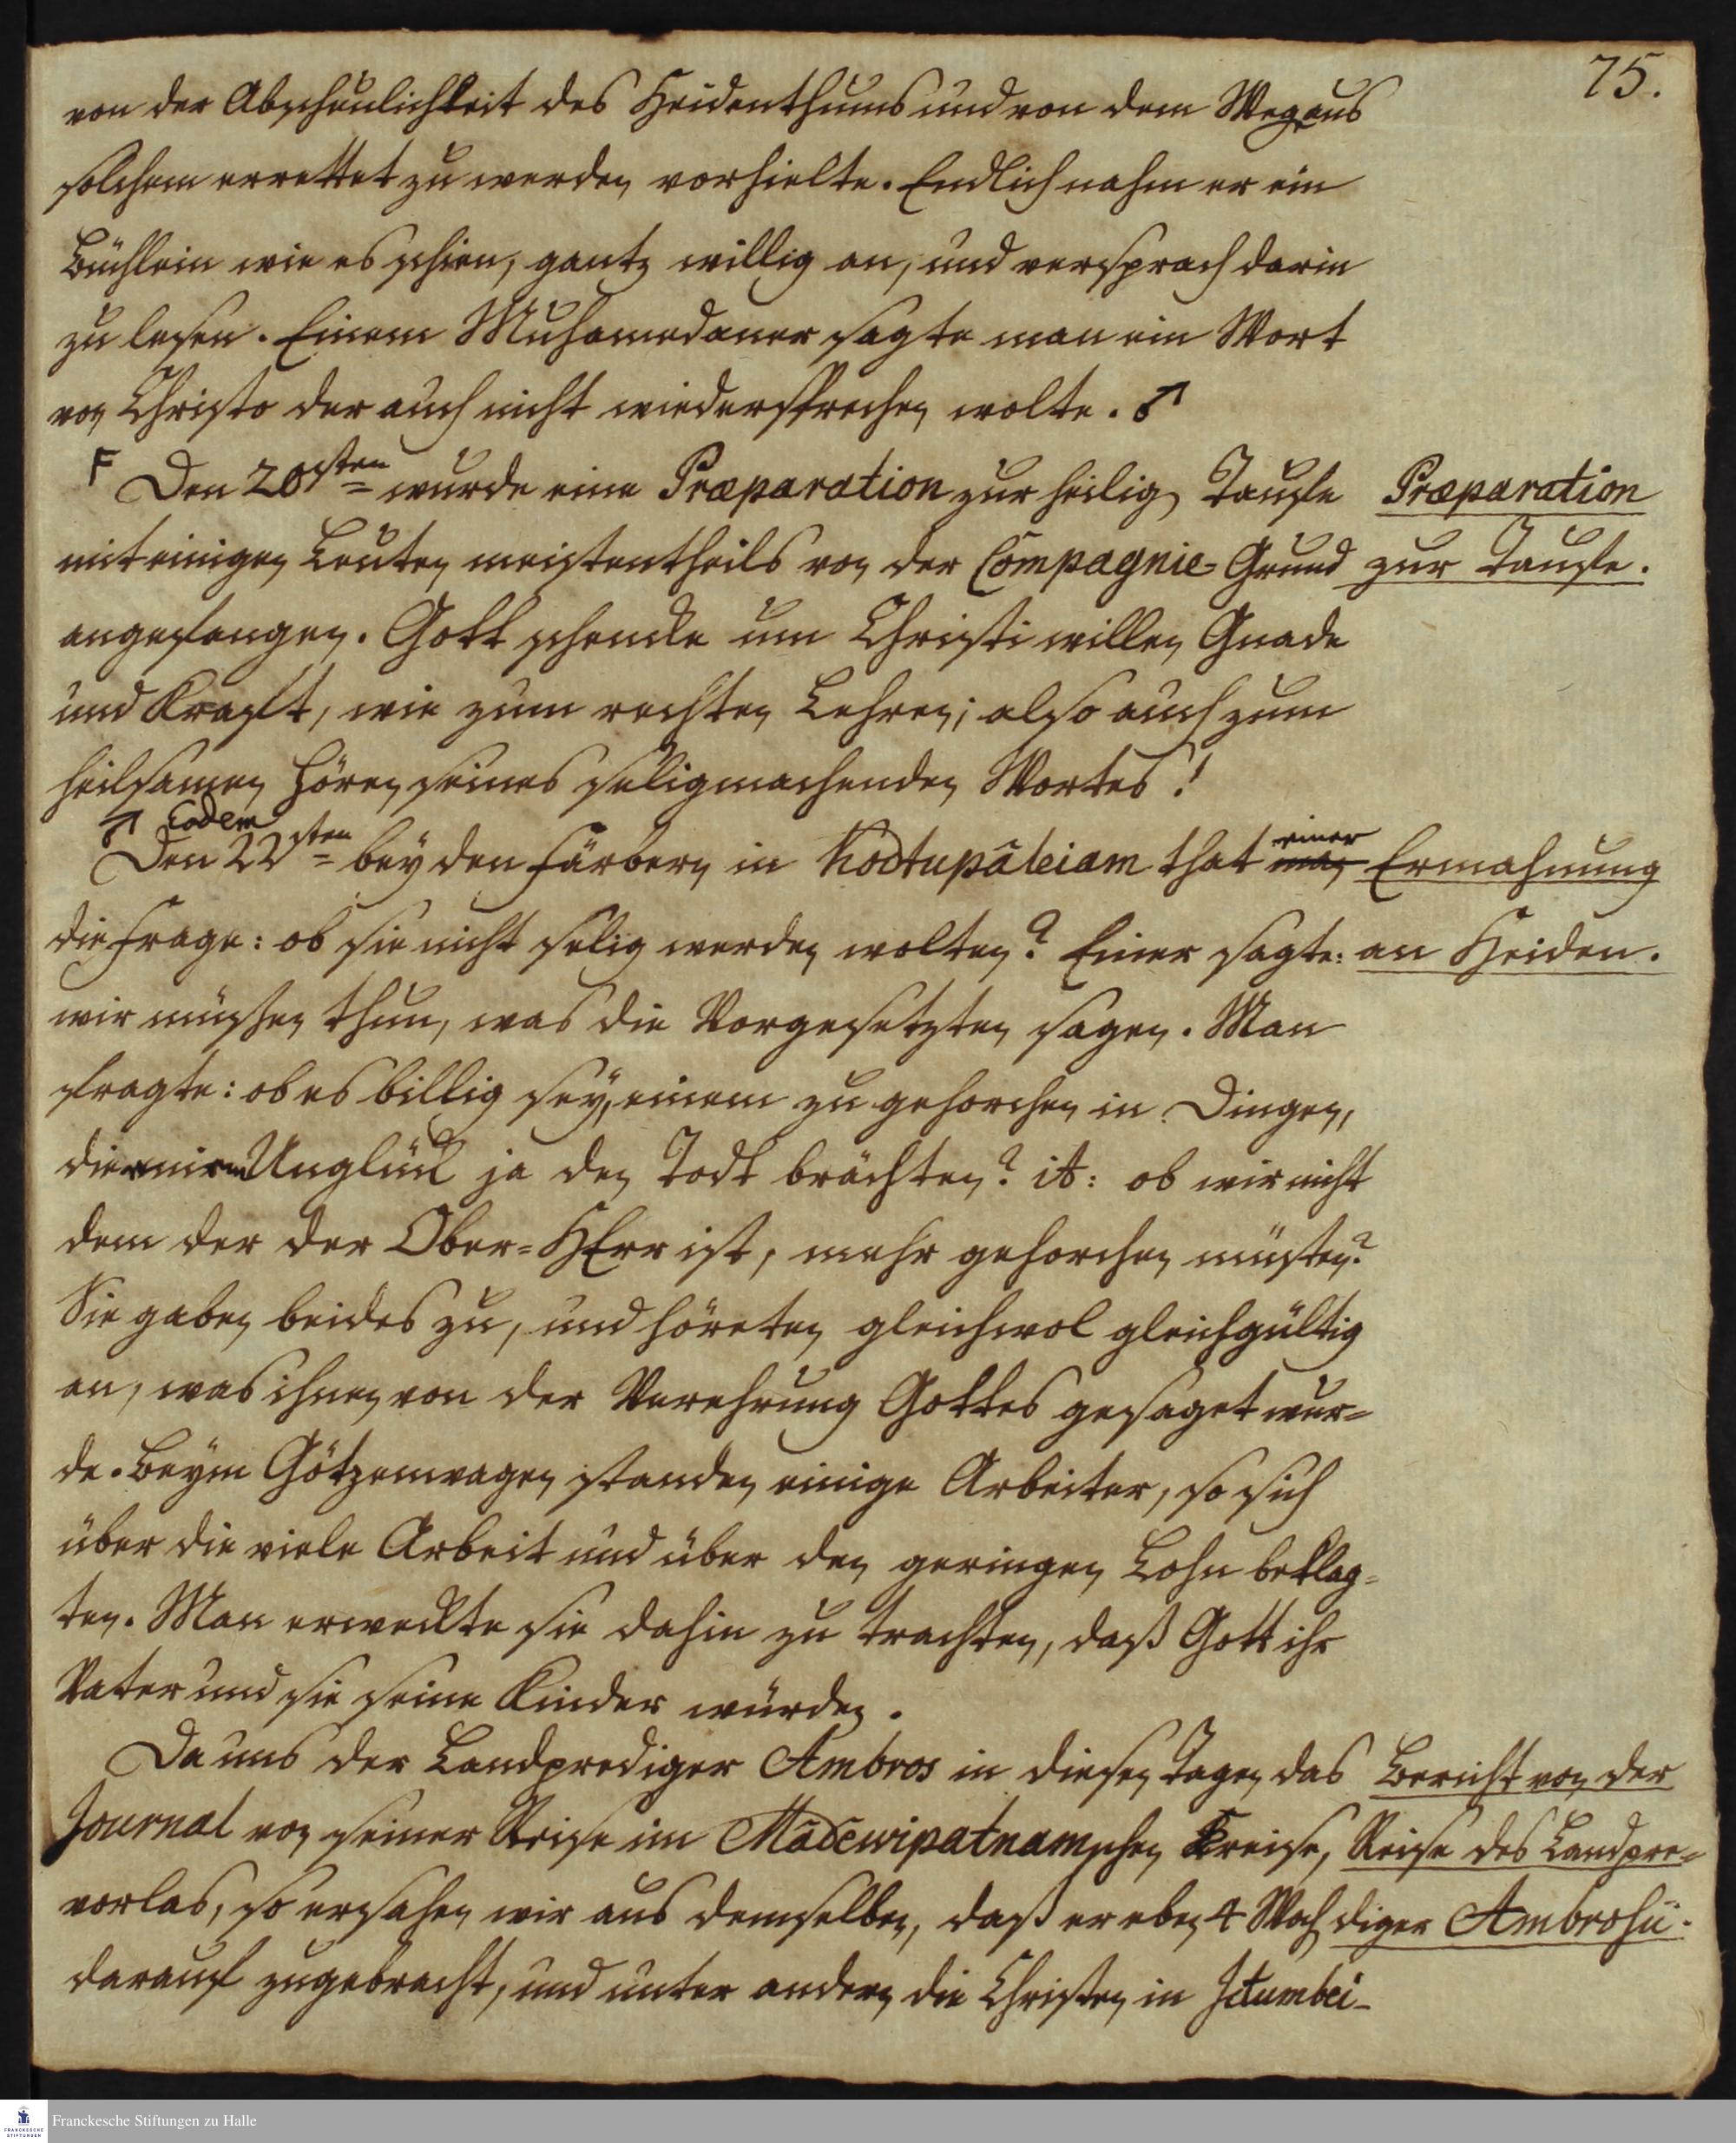 75.
von der Abscheulichkeit des Heidenthums und von dem Weg aus
solchem errettet zu werden vorhielte. Endlich nahm er ein
Büchlein wie es schien, gantz willig an, und versprach darin
zu lesen. Einem Muhamedaner sagte man ein Wort
von Christo der auch nicht wiedersprechen wolte.
F Den 20sten wurde eine Præparation zur heilig Taufe
Præparation
mit einigen Leuten meistentheils von der Compagnie-Grund
zur Taufe.
angefangen. Gott schencke um Christi willen Gnade
und Kraft, wie zum rechten Lehren; also auch zum
heilsamen Hören seines seligmachenden Wortes!
Eodem
Den 22sten bey den Färbern in Kodtupâleiam that man einer
Ermahnung
die Frage: ob sie nicht selig werden wolten? Einer sagte:
an Heiden.
wir müssen thun, was die Vorgesetzten sagen. Man
fragte: ob es billig sey, einem zu gehorchen in Dingen,
die Unglück ja den Todt brächten? it: ob wir nicht
dem der der Ober-HErr ist, mehr gehorchen müsten?
Sie gaben beides zu, und höreten gleichwol gleichgültig
an, was ihnen von der Verehrung Gottes gesaget wur-
de. Beym Götzenwagen standen einige Arbeiter, so sich
über die viele Arbeit und über den geringen Lohn beklag-
ten. Man erweckte sie dahin zu trachten, daß Gott ihr
Vater und sie seine Kinder würden.
Da uns der Landprediger Ambros in diesen Tagen das
Bericht von der
Journal von seiner Reise im Mâdewipatnamschen Kreise,
Reise des Landpre-
vorlas, so ersahen wir aus demselben, daß er eben 4 Woch
diger Ambrosii.
darauf zugebracht, und unter andern die Christen in Ittumbei-
Franckesche Stiftungen zu Halle